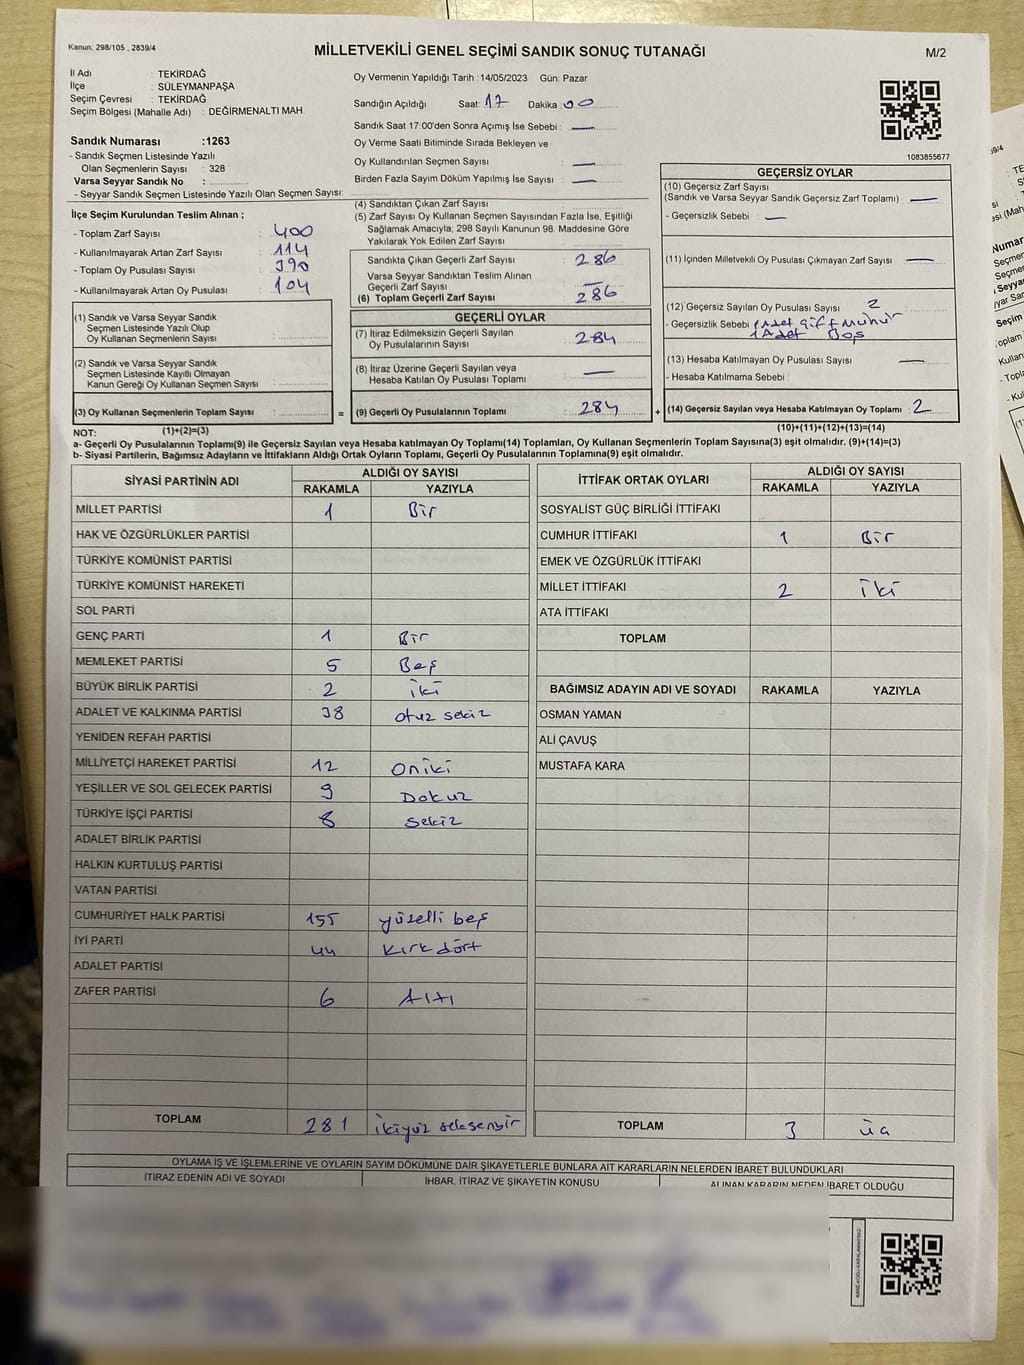 Kanun: 298/105 , 2839/4
MİLLETVEKİLİ GENEL SEÇİMİ SANDIK SONUÇ TUTANAĞI
M/2
İl Adı : TEKİRDAĞ
İlçe : SÜLEYMANPAŞA
Seçim Çevresi : TEKİRDAĞ
Seçim Bölgesi (Mahalle Adı) : DEĞİRMENALTI MAH.
Sandık Numarası :1263
- Sandık Seçmen Listesinde Yazılı
Olan Seçmenlerin Sayısı : 328
Varsa Seyyar Sandık No :
- Seyyar Sandık Seçmen Listesinde Yazılı Olan Seçmen Sayısı:
Oy Vermenin Yapıldığı Tarih : 14/05/2023 Gün: Pazar
Sandığın Açıldığı Saat: 17 Dakika: 00
Sandık Saat 17:00'den Sonra Açımış İse Sebebi : —
Oy Verme Saati Bitiminde Sırada Bekleyen ve
Oy Kullandırılan Seçmen Sayısı : —
Birden Fazla Sayım Döküm Yapılmış İse Sayısı : —
1083855677
İlçe Seçim Kurulundan Teslim Alınan ;
- Toplam Zarf Sayısı : 400
- Kullanılmayarak Artan Zarf Sayısı : 114
- Toplam Oy Pusulası Sayısı : 390
- Kullanılmayarak Artan Oy Pusulası : 104
(1) Sandık ve Varsa Seyyar Sandık
Seçmen Listesinde Yazılı Olup
Oy Kullanan Seçmenlerin Sayısı :
(2) Sandık ve Varsa Seyyar Sandık
Seçmen Listesinde Kayıtlı Olmayan
Kanun Gereği Oy Kullanan Seçmen Sayısı :
(3) Oy Kullanan Seçmenlerin Toplam Sayısı :
(1)+(2)=(3)
(4) Sandıktan Çıkan Zarf Sayısı :
(5) Zarf Sayısı Oy Kullanan Seçmen Sayısından Fazla İse, Eşitliği
Sağlamak Amacıyla; 298 Sayılı Kanunun 98. Maddesine Göre
Yakılarak Yok Edilen Zarf Sayısı :
Sandıkta Çıkan Geçerli Zarf Sayısı : 286
Varsa Seyyar Sandıktan Teslim Alınan
Geçerli Zarf Sayısı : —
(6) Toplam Geçerli Zarf Sayısı : 286
GEÇERLİ OYLAR
(7) İtiraz Edilmeksizin Geçerli Sayılan
Oy Pusulalarının Sayısı : 284
(8) İtiraz Üzerine Geçerli Sayılan veya
Hesaba Katılan Oy Pusulası Toplamı : —
= (9) Geçerli Oy Pusulalarının Toplamı : 284
GEÇERSİZ OYLAR
(10) Geçersiz Zarf Sayısı
(Sandık ve Varsa Seyyar Sandık Geçersiz Zarf Toplamı) : —
- Geçersizlik Sebebi : —
(11) İçinden Milletvekili Oy Pusulası Çıkmayan Zarf Sayısı : —
(12) Geçersiz Sayılan Oy Pusulası Sayısı : 2
- Geçersizlik Sebebi : 1 Adet çift Mühür
1 Adet Boş
(13) Hesaba Katılmayan Oy Pusulası Sayısı : —
- Hesaba Katılmama Sebebi :
+ (14) Geçersiz Sayılan veya Hesaba Katılmayan Oy Toplamı : 2
(10)+(11)+(12)+(13)=(14)
NOT:
a- Geçerli Oy Pusulalarının Toplamı(9) ile Geçersiz Sayılan veya Hesaba katılmayan Oy Toplamı(14) Toplamları, Oy Kullanan Seçmenlerin Toplam Sayısına(3) eşit olmalıdır. (9)+(14)=(3)
b- Siyasi Partilerin, Bağımsız Adayların ve İttifakların Aldığı Ortak Oyların Toplamı, Geçerli Oy Pusulalarının Toplamına(9) eşit olmalıdır.
SİYASİ PARTİNİN ADI
ALDIĞI OY SAYISI
RAKAMLA YAZIYLA
MİLLET PARTİSİ 1 Bir
HAK VE ÖZGÜRLÜKLER PARTİSİ
TÜRKİYE KOMÜNİST PARTİSİ
TÜRKİYE KOMÜNİST HAREKETİ
SOL PARTİ
GENÇ PARTİ 1 Bir
MEMLEKET PARTİSİ 5 Beş
BÜYÜK BİRLİK PARTİSİ 2 iki
ADALET VE KALKINMA PARTİSİ 38 otuz sekiz
YENİDEN REFAH PARTİSİ
MİLLİYETÇİ HAREKET PARTİSİ 12 oniki
YEŞİLLER VE SOL GELECEK PARTİSİ 9 Dokuz
TÜRKİYE İŞÇİ PARTİSİ 8 sekiz
ADALET BİRLİK PARTİSİ
HALKIN KURTULUŞ PARTİSİ
VATAN PARTİSİ
CUMHURİYET HALK PARTİSİ 155 yüzelli beş
İYİ PARTİ 44 Kırk dört
ADALET PARTİSİ
ZAFER PARTİSİ 6 Altı
TOPLAM 281 ikiyüz seksenbir
İTTİFAK ORTAK OYLARI
ALDIĞI OY SAYISI
RAKAMLA YAZIYLA
SOSYALİST GÜÇ BİRLİĞİ İTTİFAKI
CUMHUR İTTİFAKI 1 Bir
EMEK VE ÖZGÜRLÜK İTTİFAKI
MİLLET İTTİFAKI 2 iki
ATA İTTİFAKI
TOPLAM
BAĞIMSIZ ADAYIN ADI VE SOYADI RAKAMLA YAZIYLA
OSMAN YAMAN
ALİ ÇAVUŞ
MUSTAFA KARA
TOPLAM 3 üç
OYLAMA İŞ VE İŞLEMLERİNE VE OYLARIN SAYIM DÖKÜMÜNE DAİR ŞİKAYETLERLE BUNLARA AİT KARARLARIN NELERDEN İBARET BULUNDUKLARI
İTİRAZ EDENİN ADI VE SOYADI
İHBAR, İTİRAZ VE ŞİKAYETİN KONUSU
ALINAN KARARIN NEDEN İBARET OLDUĞU